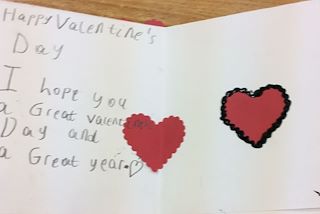 Happy Valentine's
Day
I hope you
a Great valentines
Day and
a Great year.♡